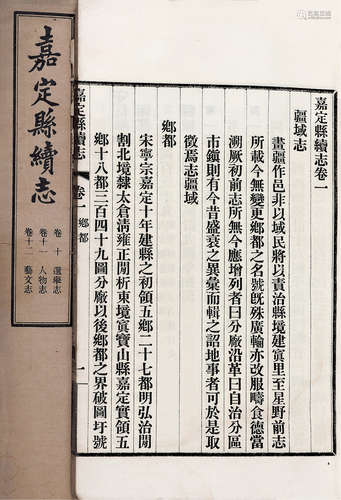 嘉定縣續志
卷十 選舉志
卷十一 人物志
卷十二 藝文志
嘉定縣續志卷一
疆域志
畫疆作邑非以域民將以責治縣境建寘里至星野前志
所載今無變更鄉都之名號旣殊廣輪亦改服疇食德當
溯厥初前志所無今應增列者曰分廠沿革曰自治分區
市鎭則有今昔盛衰之異彙而輯之詔地事者可於是取
徵焉志疆域
鄉都
宋寧宗嘉定十年建縣之初領五鄉二十七都明弘治閒
割北境隸太倉淸雍正閒析東境寘寶山縣嘉定實領五
鄉十八都三百四十九圖分廠以後鄉都之界破圖圩號
嘉定縣續志
卷一 鄉都
一